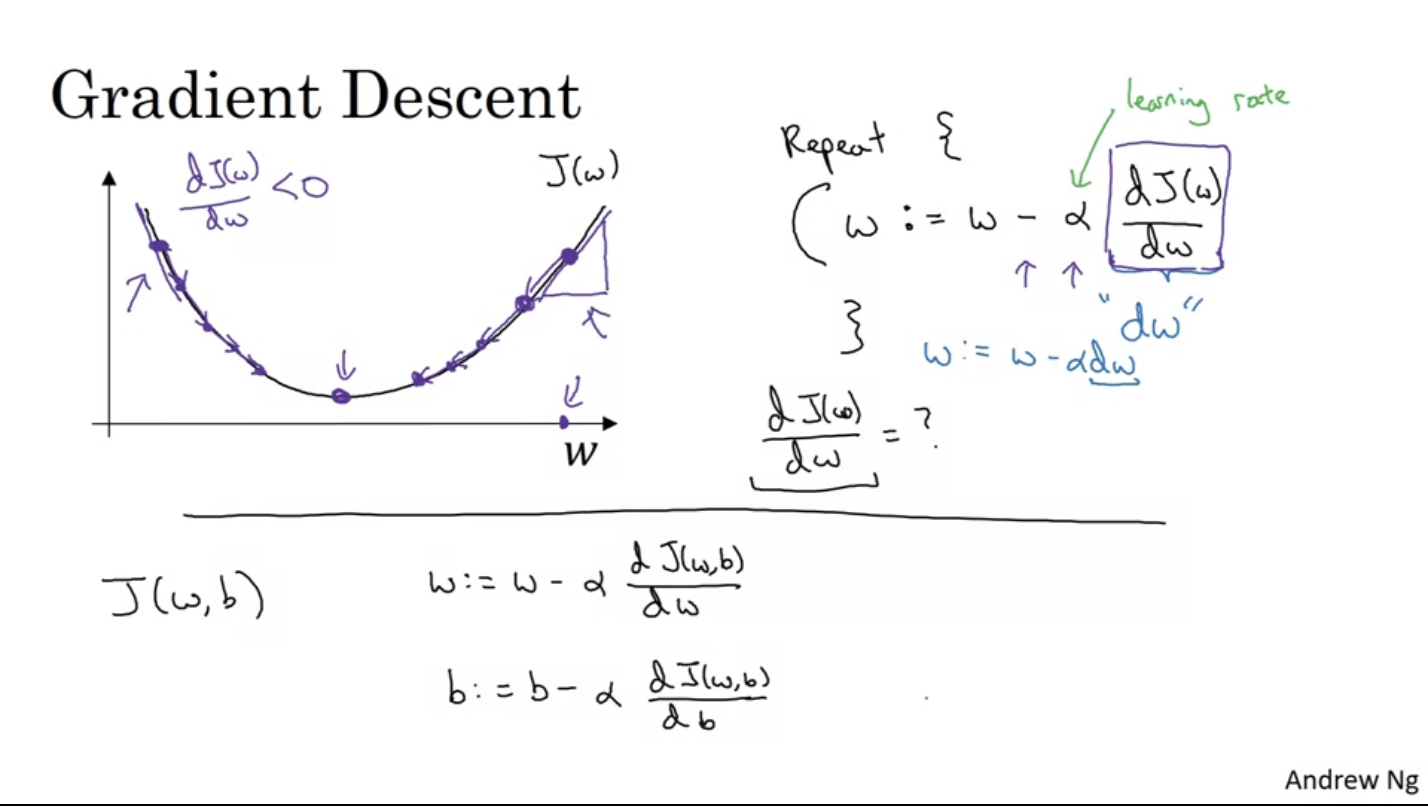 Gradient Descent
learning rate
dJ(w)/dw <0
J(w)
Repeat {
w := w - α dJ(w)/dw
"dw"
}
w := w - αdw
w
dJ(w)/dw = ?
J(w,b)
w := w - α dJ(w,b)/dw
b := b - α dJ(w,b)/db
Andrew Ng